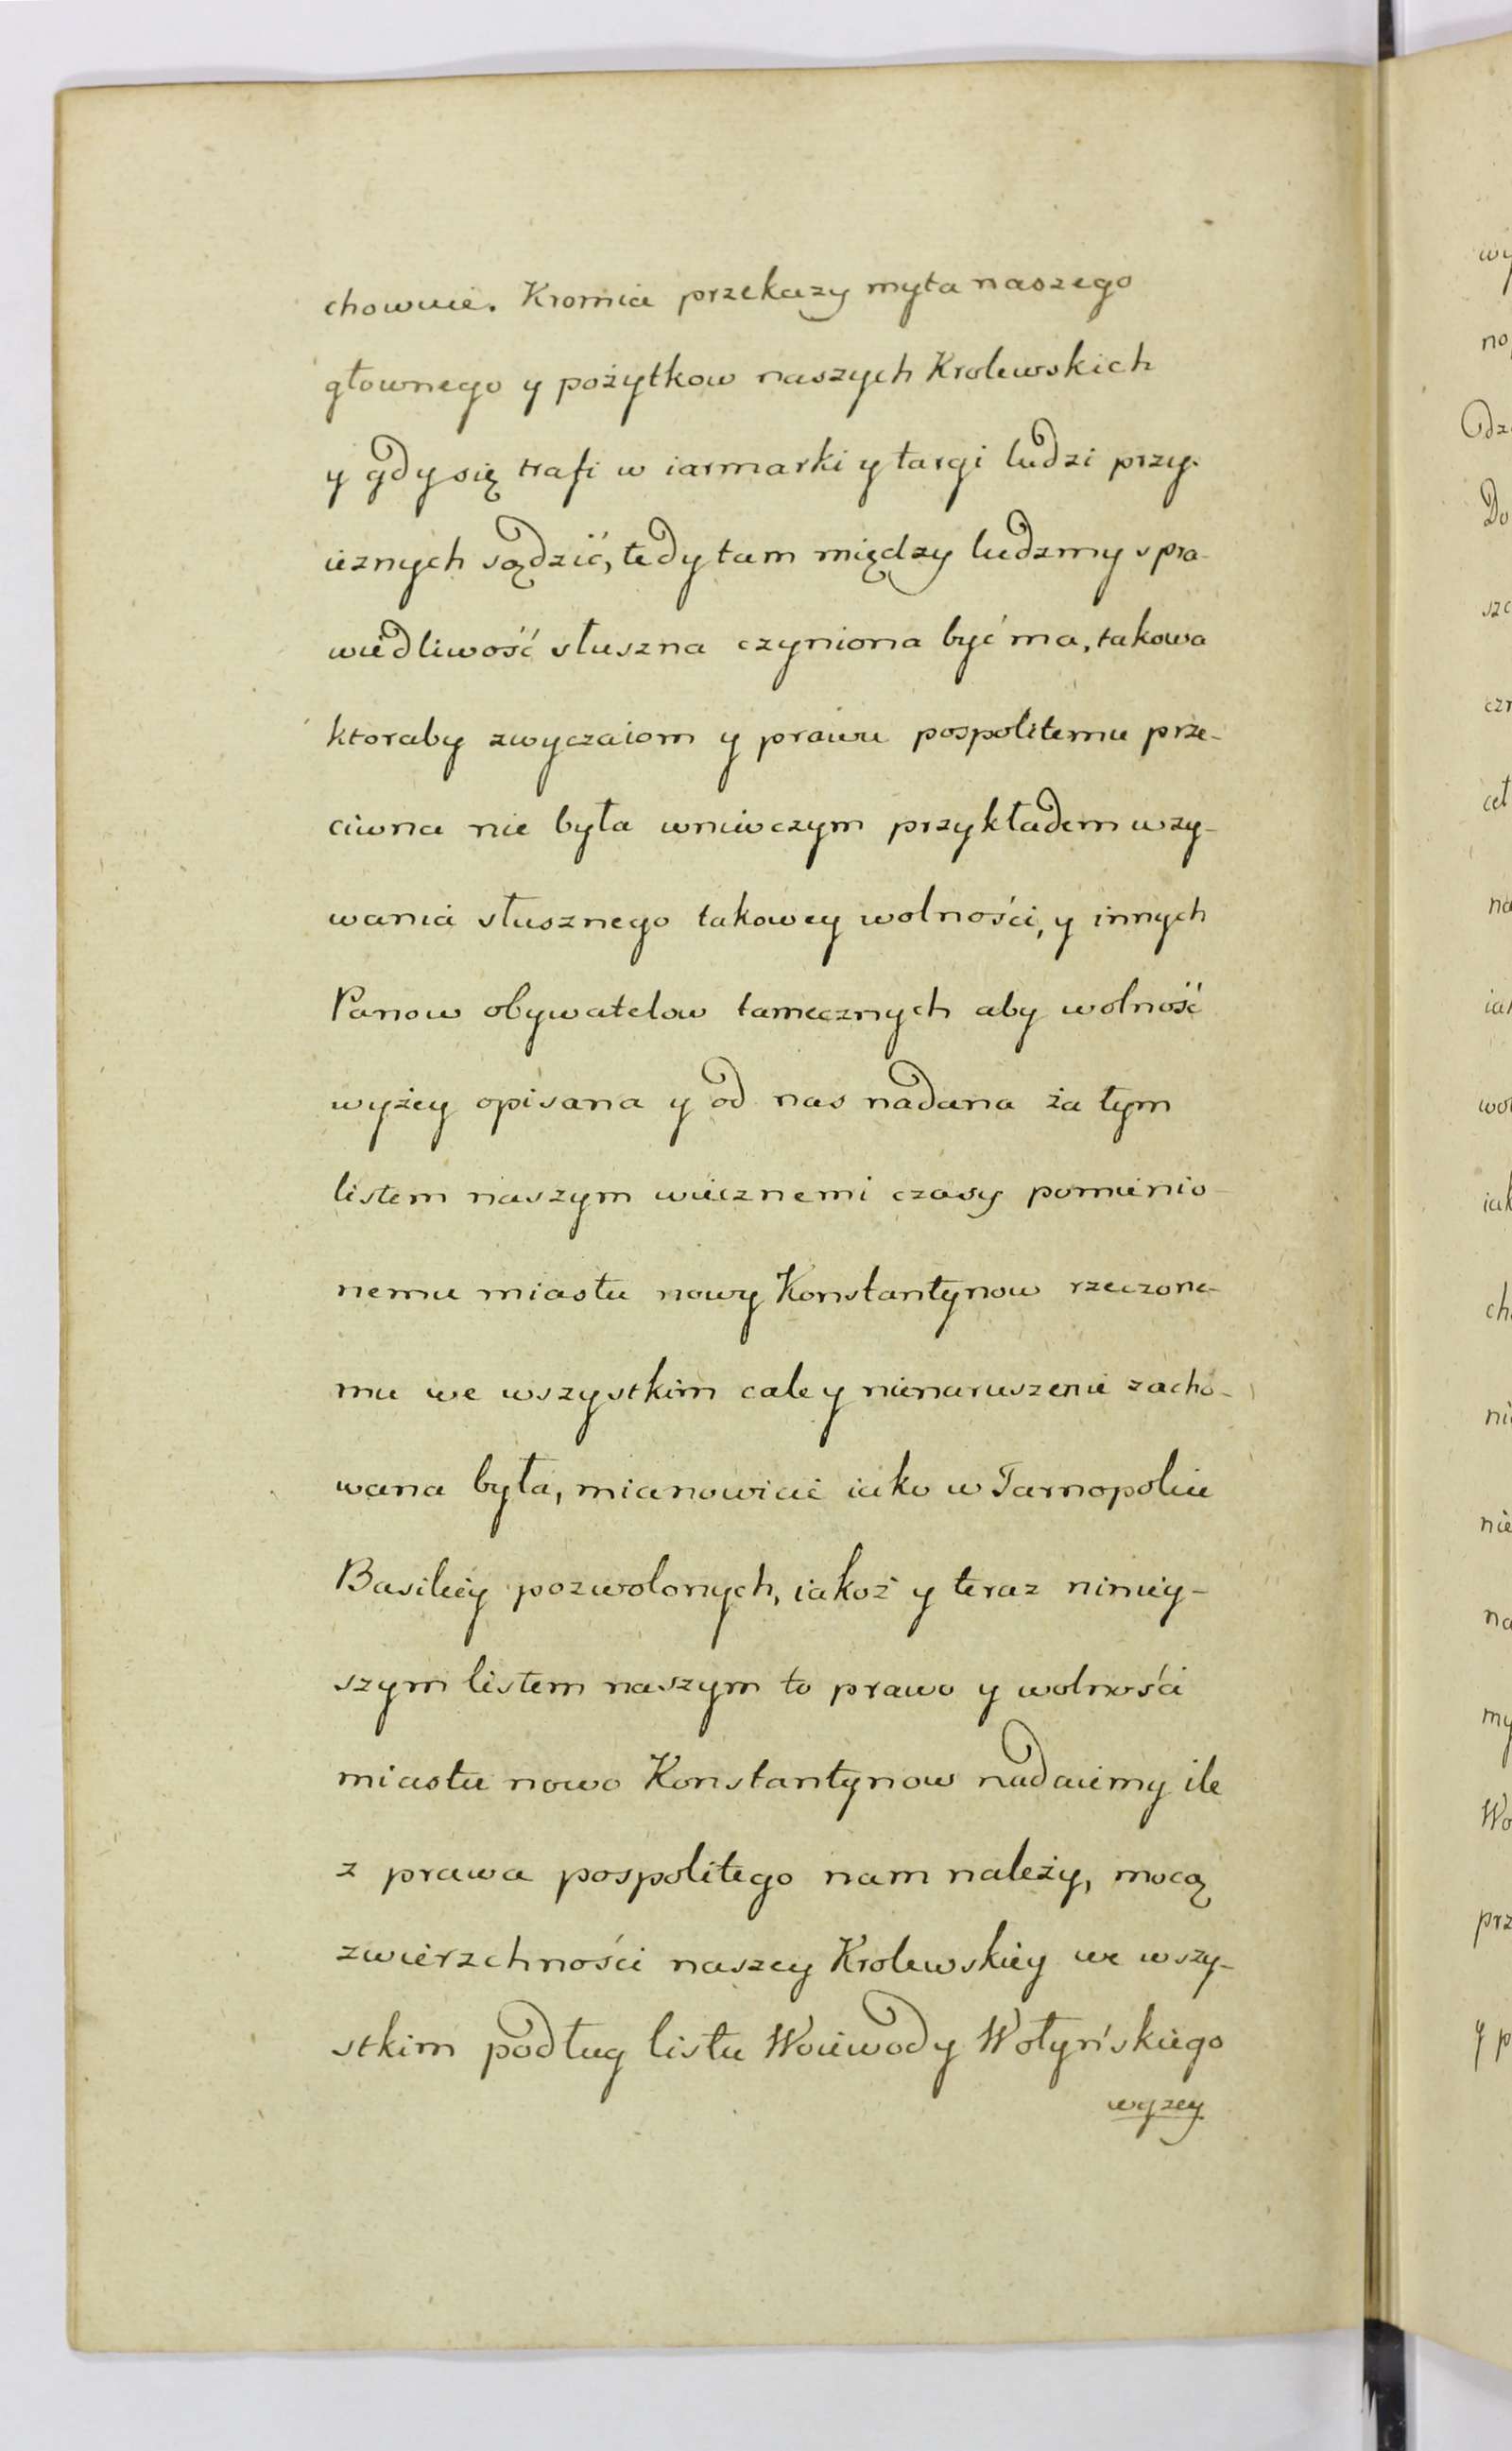 chownie. Kromia przekazy myta naszego
głownego y pożytkow naszych Krolewskich
y gdy się trafi w iarmarki y targi ludzi przy-
ieznych sądzić, tedy tam między ludzmy spra-
wiedliwość słuszna czyniona być ma, takowa
ktoraby zwyczaiom y prawu pospolitemu prze-
ciwna nie była wniwczym przykładem wzy-
wania słusznego takowey wolności, y innych
Panow obywatelow tamecznych aby wolność
wyżey opisana y od nas nadana za tym
listem naszym wiecznemi czasy pomienio-
nemu miastu nowy Konstantynow rzeczone-
mu we wszystkim cale y nienaruszenie zacho-
wana była, mianowicie iako w Tarnopoliu
Basiliey pozwolonych, iakoż y teraz niniey-
szym listem naszym to prawo y wolności
miastu nowo Konstantynow nadaiemy ile
z prawa pospolitego nam należy, mocą
zwierzchności naszey Krolewskiey we wszy-
stkim podług listu Woiewody Wołyńskiego
wyzey
wy
no
Odz
Do
szc
czn
cał
na
iar
wol
iak
cho
nie
nie
na
my
Wo
prz
y p